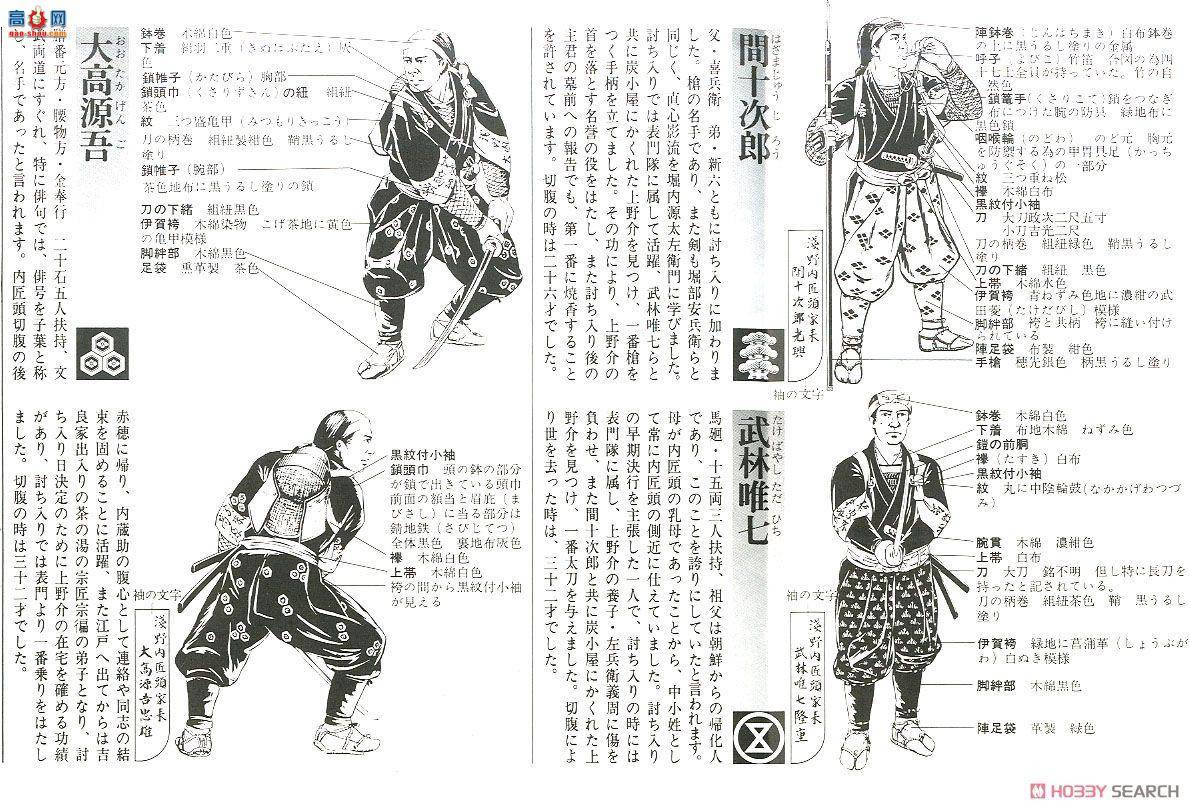 高品网
Gao-shou.com
間十次郎
はざまじゅうじろう
父・喜兵衛　弟・新六ともに討ち入りに加わりま
した。槍の名手であり、また剣も堀部安兵衛らと
同じく、直心影流を堀内源太左衛門に学びました。
討ち入りでは表門隊に属して活躍、武林唯七らと
共に炭小屋にかくれた上野介を見つけ、一番槍を
つく手柄を立てました。その功により、上野介の
首を落とす名誉の役をはたし、また討ち入り後の
主君の墓前への報告でも、第一番に焼香すること
を許されています。切腹の時は二十六才でした。
陣鉢巻（じんはちまき）白布鉢巻
の上に黒うるし塗りの金属
呼子（よびこ）竹笛　合図の為四
十七士全員が持っていた。竹の自
然色
鎖篭手（くさりこて）鎖をつなぎ
布につけた腕の防具　緑地布に
黒色鎖
咽喉輪（のどわ）　のど元　胸元
を防禦する為の甲冑具足（かっち
ゅうぐそく）の一部分
紋　三つ重ね松
襷　木綿白布
黒紋付小袖
刀　大刀政次二尺五寸
小刀吉光二尺
刀の柄巻　組紐緑色　鞘黒うるし
塗り
刀の下緒　組紐　黒色
上帯　木綿水色
伊賀袴　青ねずみ色地に濃紺の武
田菱（たけだびし）模様
脚絆部　袴と共柄　袴に縫い付け
られている
陣足袋　布製　紺色
手槍　穂先銀色　柄黒うるし塗り
淺野内匠頭家長
間十次郎光興
袖の文字
武林唯七
たけばやしただひち
馬廻・十五両三人扶持、祖父は朝鮮からの帰化人
であり、このことを誇りにしていたと言われます。
母が内匠頭の乳母であったことから、中小姓とし
て常に内匠頭の側近に仕えていました。討ち入り
の早期決行を主張した一人で、討ち入りの時には
表門隊に属し、上野介の養子・左兵衛義周に傷を
負わせ、また間十次郎と共に炭小屋にかくれた上
野介を見つけ、一番太刀を与えました。切腹によ
り世を去った時は、三十二才でした。
鉢巻　木綿白色
下着　布地木綿　ねずみ色
鎧の前胴
襷（たすき）白布
黒紋付小袖
紋　丸に中陰輪鼓（なかかげわつづ
み）
腕貫　木綿　濃紺色
上帯　白布
刀　大刀　銘不明　但し特に長刀を
持ったと記されている。
刀の柄巻　組紐茶色　鞘　黒うるし
塗り
伊賀袴　緑地に菖蒲革（しょうぶが
わ）白ぬき模様
脚絆部　木綿黒色
陣足袋　革製　緑色
袖の文字
淺野内匠頭家長
武林唯七隆重
大高源吾
おおたかげんご
番元方・腰物方・金奉行　二十石五人扶持、文
武両道にすぐれ、特に俳句では、俳号を子葉と称
し、名手であったと言われます。内匠頭切腹の後
赤穂に帰り、内蔵助の腹心として連絡や同志の結
束を固めることに活躍、また江戸へ出てからは吉
良家出入りの茶の湯の宗匠宗徧の弟子となり、討
ち入り日決定のために上野介の在宅を確める功績
があり、討ち入りでは表門より一番乗りをはたし
ました。切腹の時は三十二才でした。
鉢巻　木綿白色
下着　絹羽二重（きぬはぶたえ）灰
色
鎖帷子（かたびら）胸部
鎖頭巾（くさりずきん）の紐　組紐
茶色
紋　三つ盛亀甲（みつもりきっこう）
刀の柄巻　組紐製紺色　鞘黒うるし
塗り
鎖帷子（腕部）
茶色地布に黒うるし塗りの鎖
刀の下緒　組紐黒色
伊賀袴　木綿染物　こげ茶地に黄色
の亀甲模様
脚絆部　木綿黒色
足袋　熏革製　茶色
黒紋付小袖
鎖頭巾　頭の鉢の部分
が鎖で出きている頭巾
前面の額当と眉庇（ま
びさし）に当る部分は
錆地鉄（さびじてつ）
全体黒色　裏地布灰色
襷　木綿白色
上帯　木綿白色
袴の間から黒紋付小袖
が見える
袖の文字
淺野内匠頭家長
大高源吾忠雄
HOBBY SEARCH